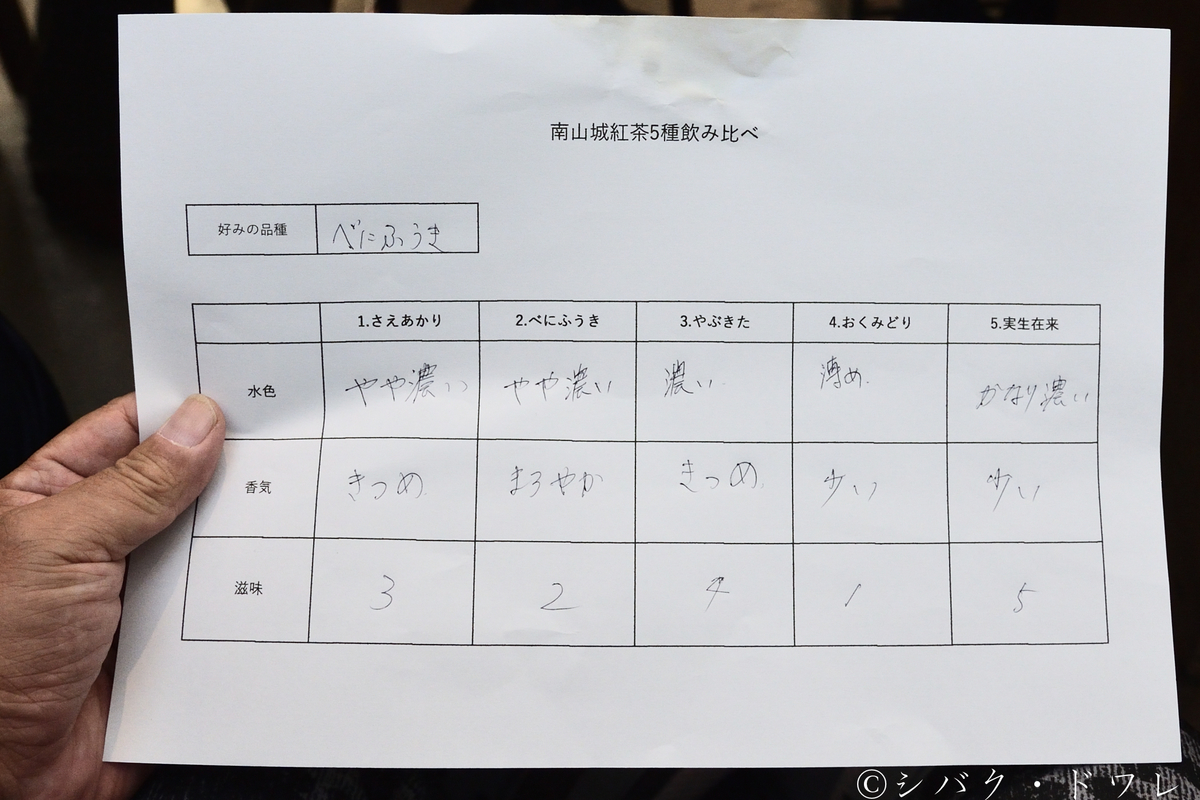 南山城紅茶5種飲み比べ
好みの品種 べにふうき
1.さえあかり 2.べにふうき 3.やぶきた 4.おくみどり 5.実生在来
水色 やや濃い やや濃い 濃い 薄め. かなり濃い
香気 きつめ. まろやか きつめ. 少い 少い
滋味 3 2 4 1 5
©シバク・ドワレ